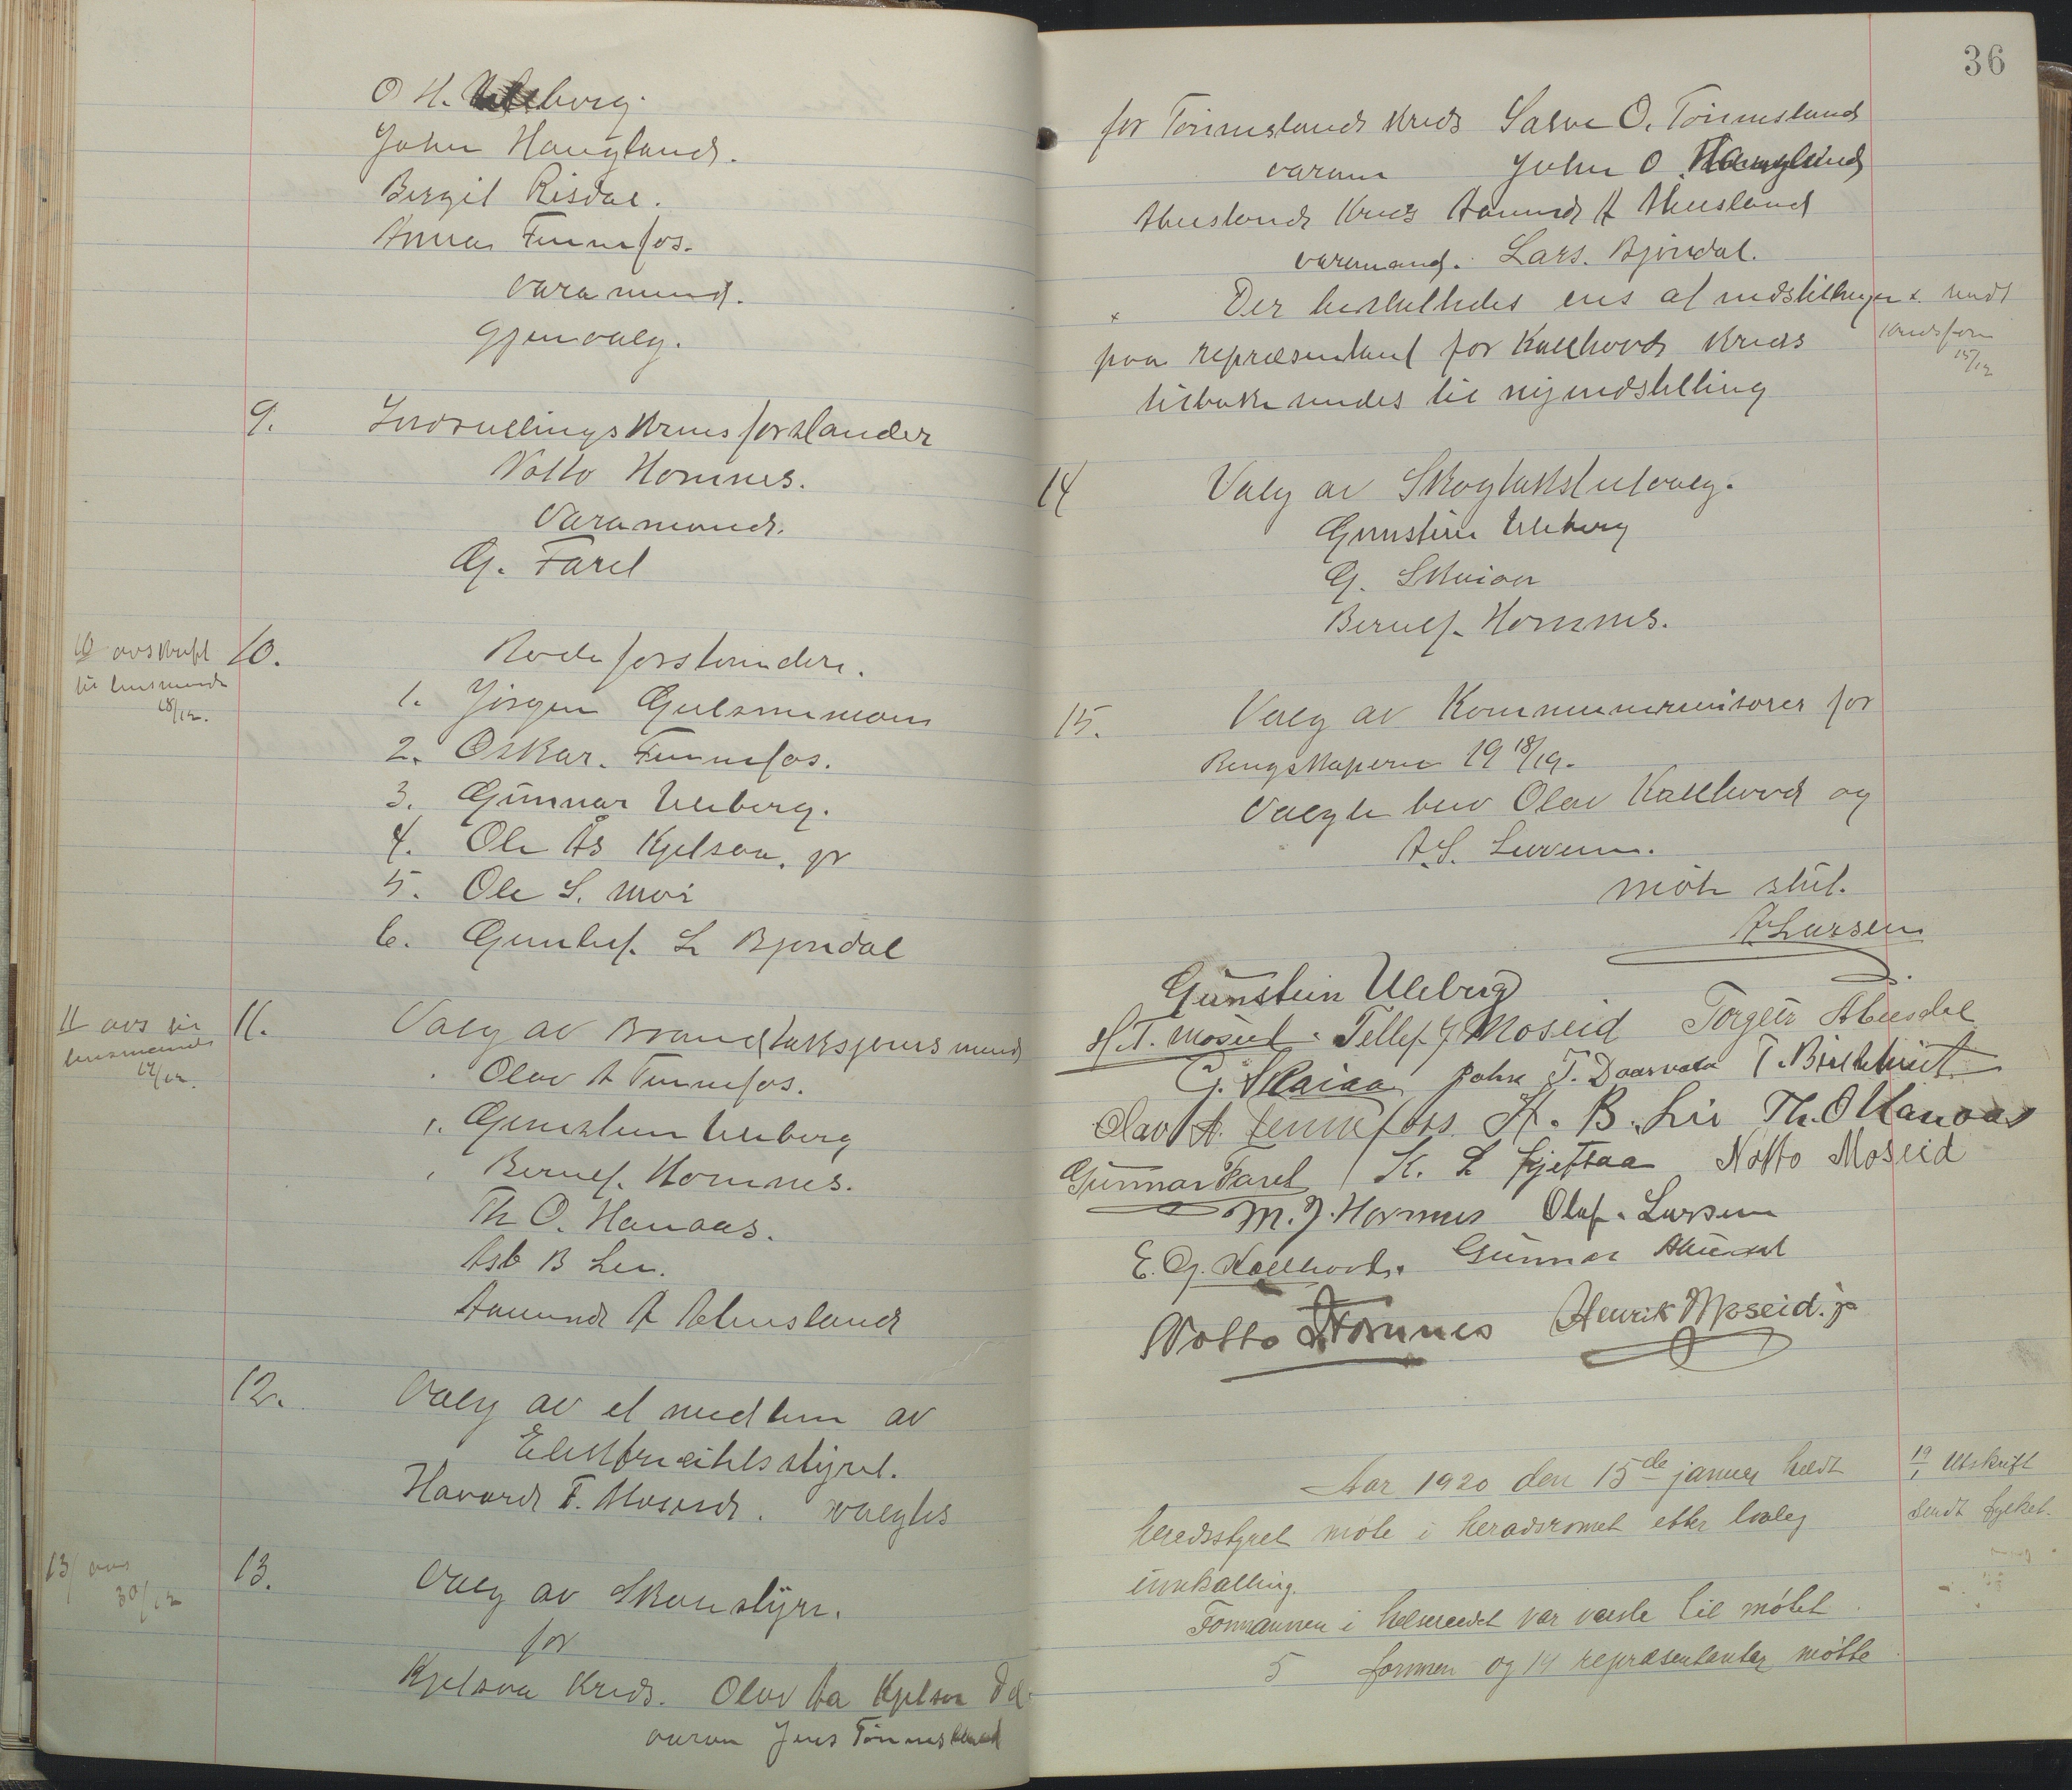 O H. Uleberg.
John Haugland.
Bergit Risdal.
Anna Fennefos.
varamend.
gjenvalg.
9. Indrulleringskredsforstander
Notto Homnes.
Varamand.
G. Faret
10 avskrift
til lensmand
18/12.
10. Rodeforstandere.
1. Jörgen Gulsmemoen
2. Oskar. Fennefos.
3. Gunnar Uleberg.
4. Ole Ås Kjelsaa. jr
5. Ole S. Moi
6. Gunluf. L Bjorndal
11 avs til
lensmand
17/12.
11. Valg av Brandtakstjensmend
Olav A Fennefos.
Gunstein Uleberg
Bernt. Homnes.
Th O. Hanaas.
Asb B Lie.
Aanund A Abusland
12. Valg av et medlem av
Elektricitetsstyret.
Havard T. Moseid. valgtes
13/ avs
30/12
13. Valg av Skoustyre.
for
Kjelsaa Kreds. Olav Aa Kjelsaa
varam Jens Tönnesland
36
for Tönneslands Kreds Salve O. Tönnesland
varam John O. Haugland
Abuslands Kreds Aanund A Abusland
varamand. Lars. Bjöndal.
x Der besluttedes ens at indstillingen
paa repræsentant for Kallhovds Kreds
tilbakesendes til ny indstilling
x. sendt
Kredsform
15/12
14 Valg av Skogtakstutvalg.
Gunstein Uleberg
G. Skaiaa
Bernt. Homnes.
15. Valg av Kommunerevisorer for
Rengskaperne 19 18/19.
Valgte blev Olav Kallhovd og
A. S. Larsen.
möte slut.
A Larsen
Gunstein Uleberg
H. T. Moseid. Tellef J Moseid Torgeir Abusdal
G. Skaiaa John T. Daasvatn T. Birkktveit
Olav A. Fennefoss. A. B. Lie Th. O Hanaas
Gunnar Faret K. L Kjettaa Notto Moseid
M. J. Homnes Oluf. Larsen
E. G. Kallhovd. Gunnar Abusdal
Notto Homnes Henrik Moseid. jr
Aar 1920 den 15de januar heldt
heredsstyret möte i heradsromet etter lovleg
innkalling.
Formannen i helseraadet var varsla til mötet
5 formen og 14 repræsentantar mötte
19/1 Utskrift
sendt fylket.